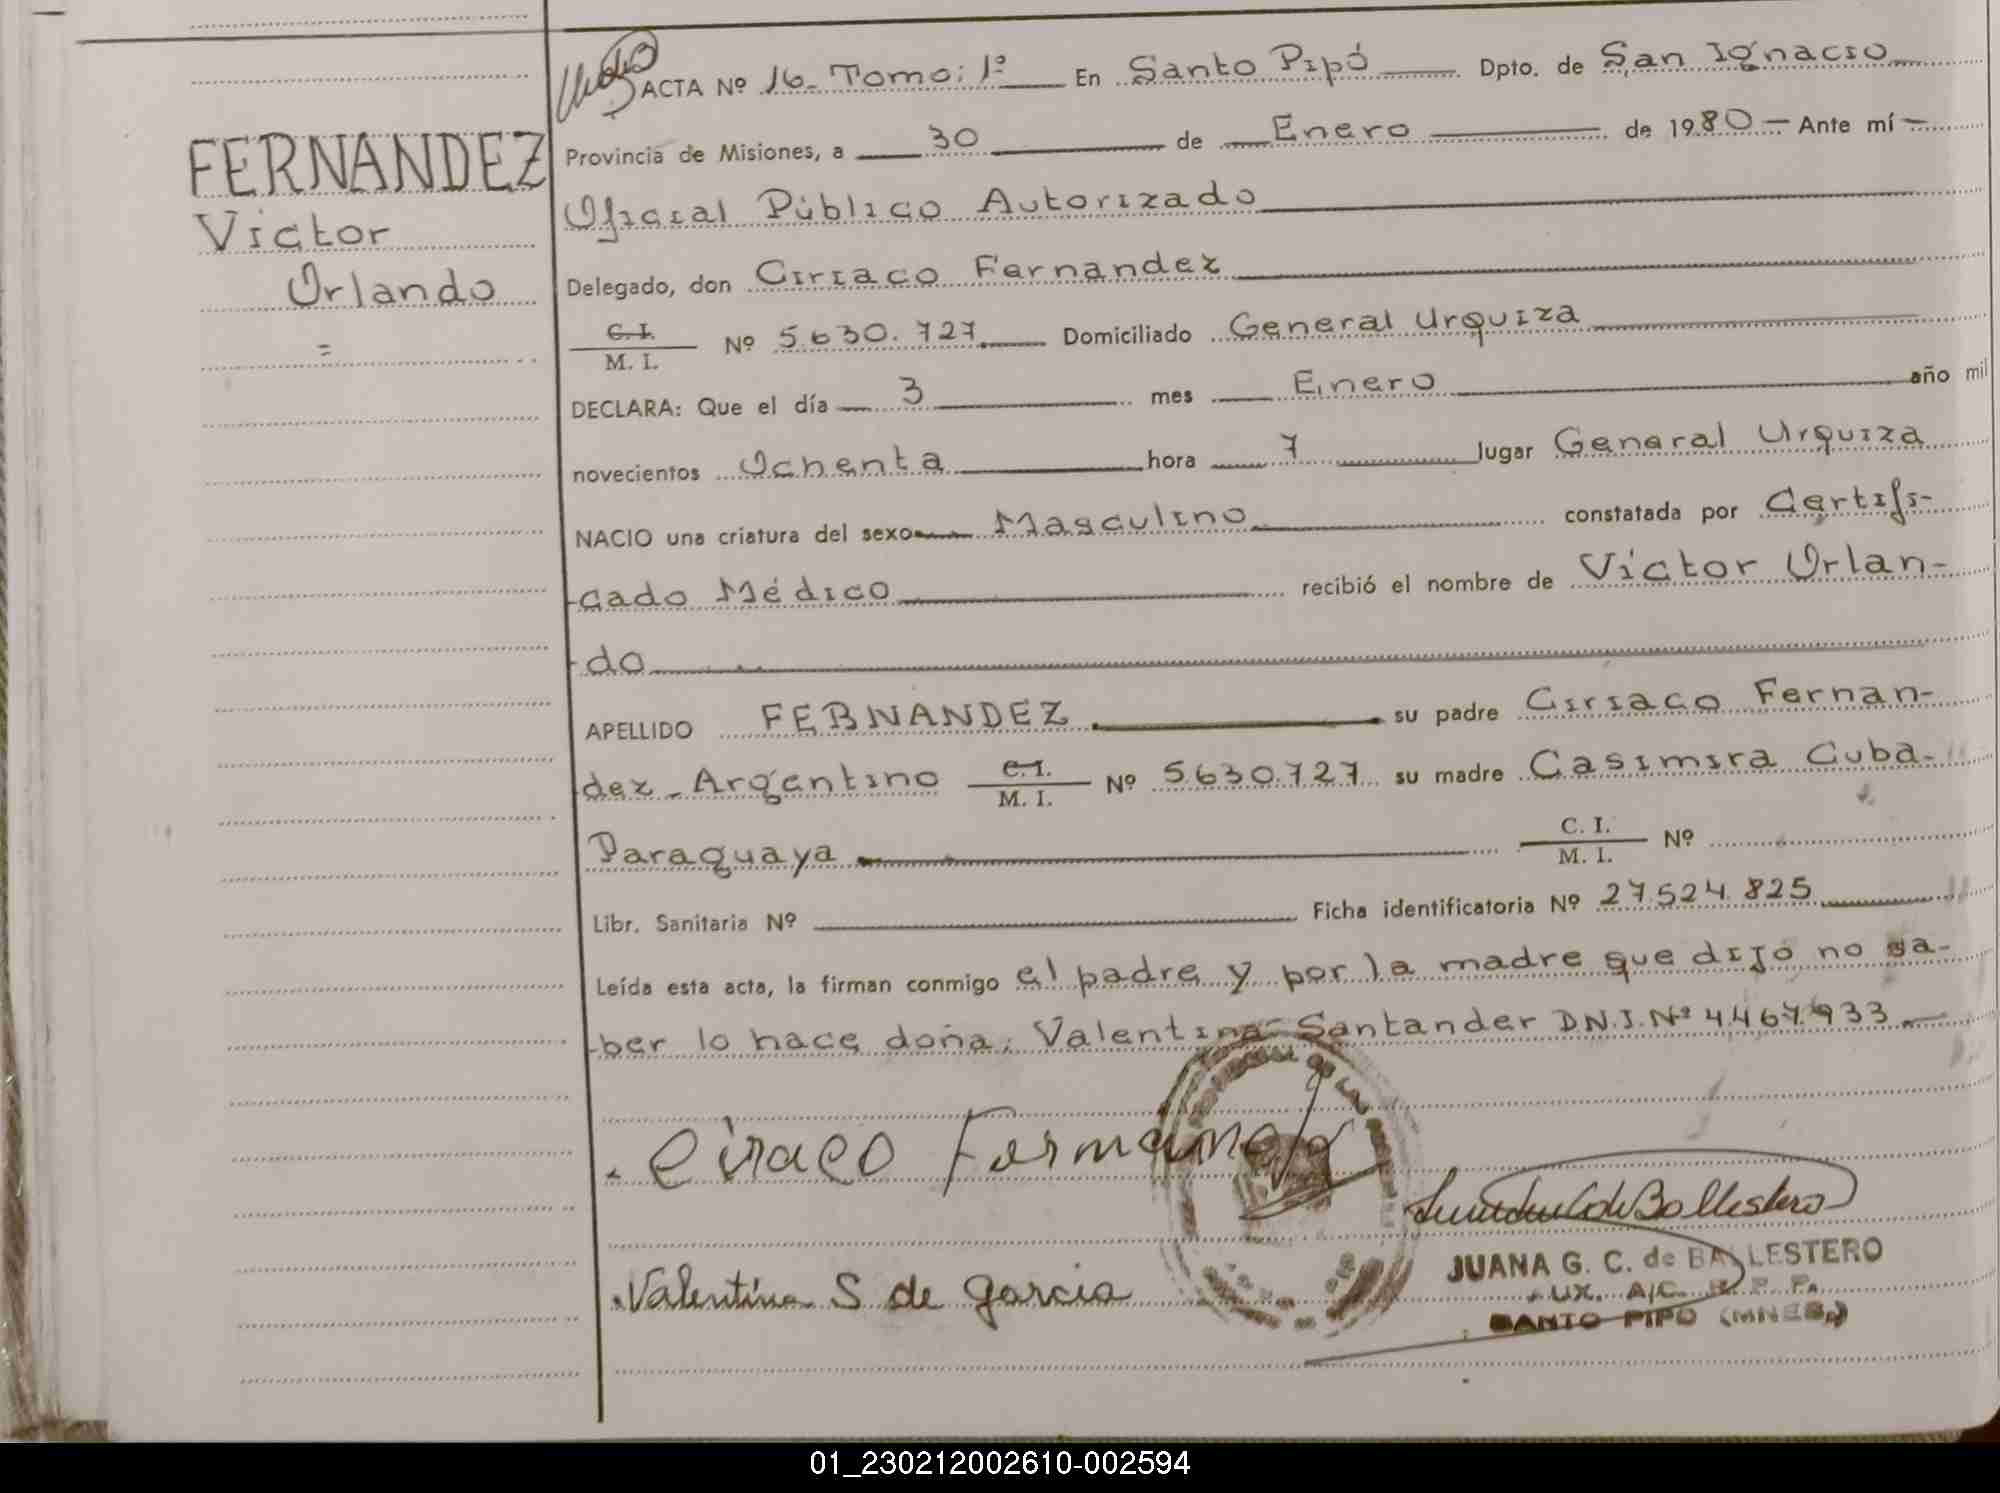 ACTA Nº 16. Tomo: 1º En Santo Pipó Dpto. de San Ignacio
FERNANDEZ
Victor
Orlando
=
Provincia de Misiones, a 30 de Enero de 1980 — Ante mí —
Oficial Público Autorizado
Delegado, don Ciriaco Fernandez
C. I.
M. I. Nº 5.630.727. Domiciliado General Urquiza
DECLARA: Que el día 3 mes Enero año mil
novecientos Ochenta hora 7 lugar General Urquiza
NACIO una criatura del sexo Masculino constatada por Certifi-
cado Médico recibió el nombre de Victor Orlan-
do
APELLIDO FERNANDEZ su padre Ciriaco Fernan-
dez - Argentino C. I. M. I. Nº 5.630.727 su madre Casimira Cuba-
Paraguaya C. I. M. I. Nº
Libr. Sanitaria Nº Ficha identificatoria Nº 27.524.825
Leída esta acta, la firman conmigo el padre y por la madre que dijo no sa-
ber lo hace doña: Valentina Santander D.N.I. Nº 4.467.933
Ciraco Fernandez
de Ballestero
JUANA G. C. de BALLESTERO
Valentina S de Garcia
AUX. A/C. R. P. P.
SANTO PIPO (MNES.)
01_230212002610-002594